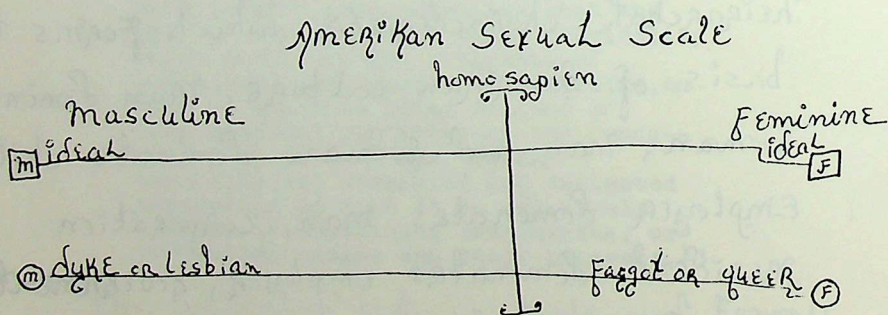 Amerikan Sexual Scale
homo sapien
Masculine Feminine
M ideal ideal F
M dyke or Lesbian Faggot or queer F